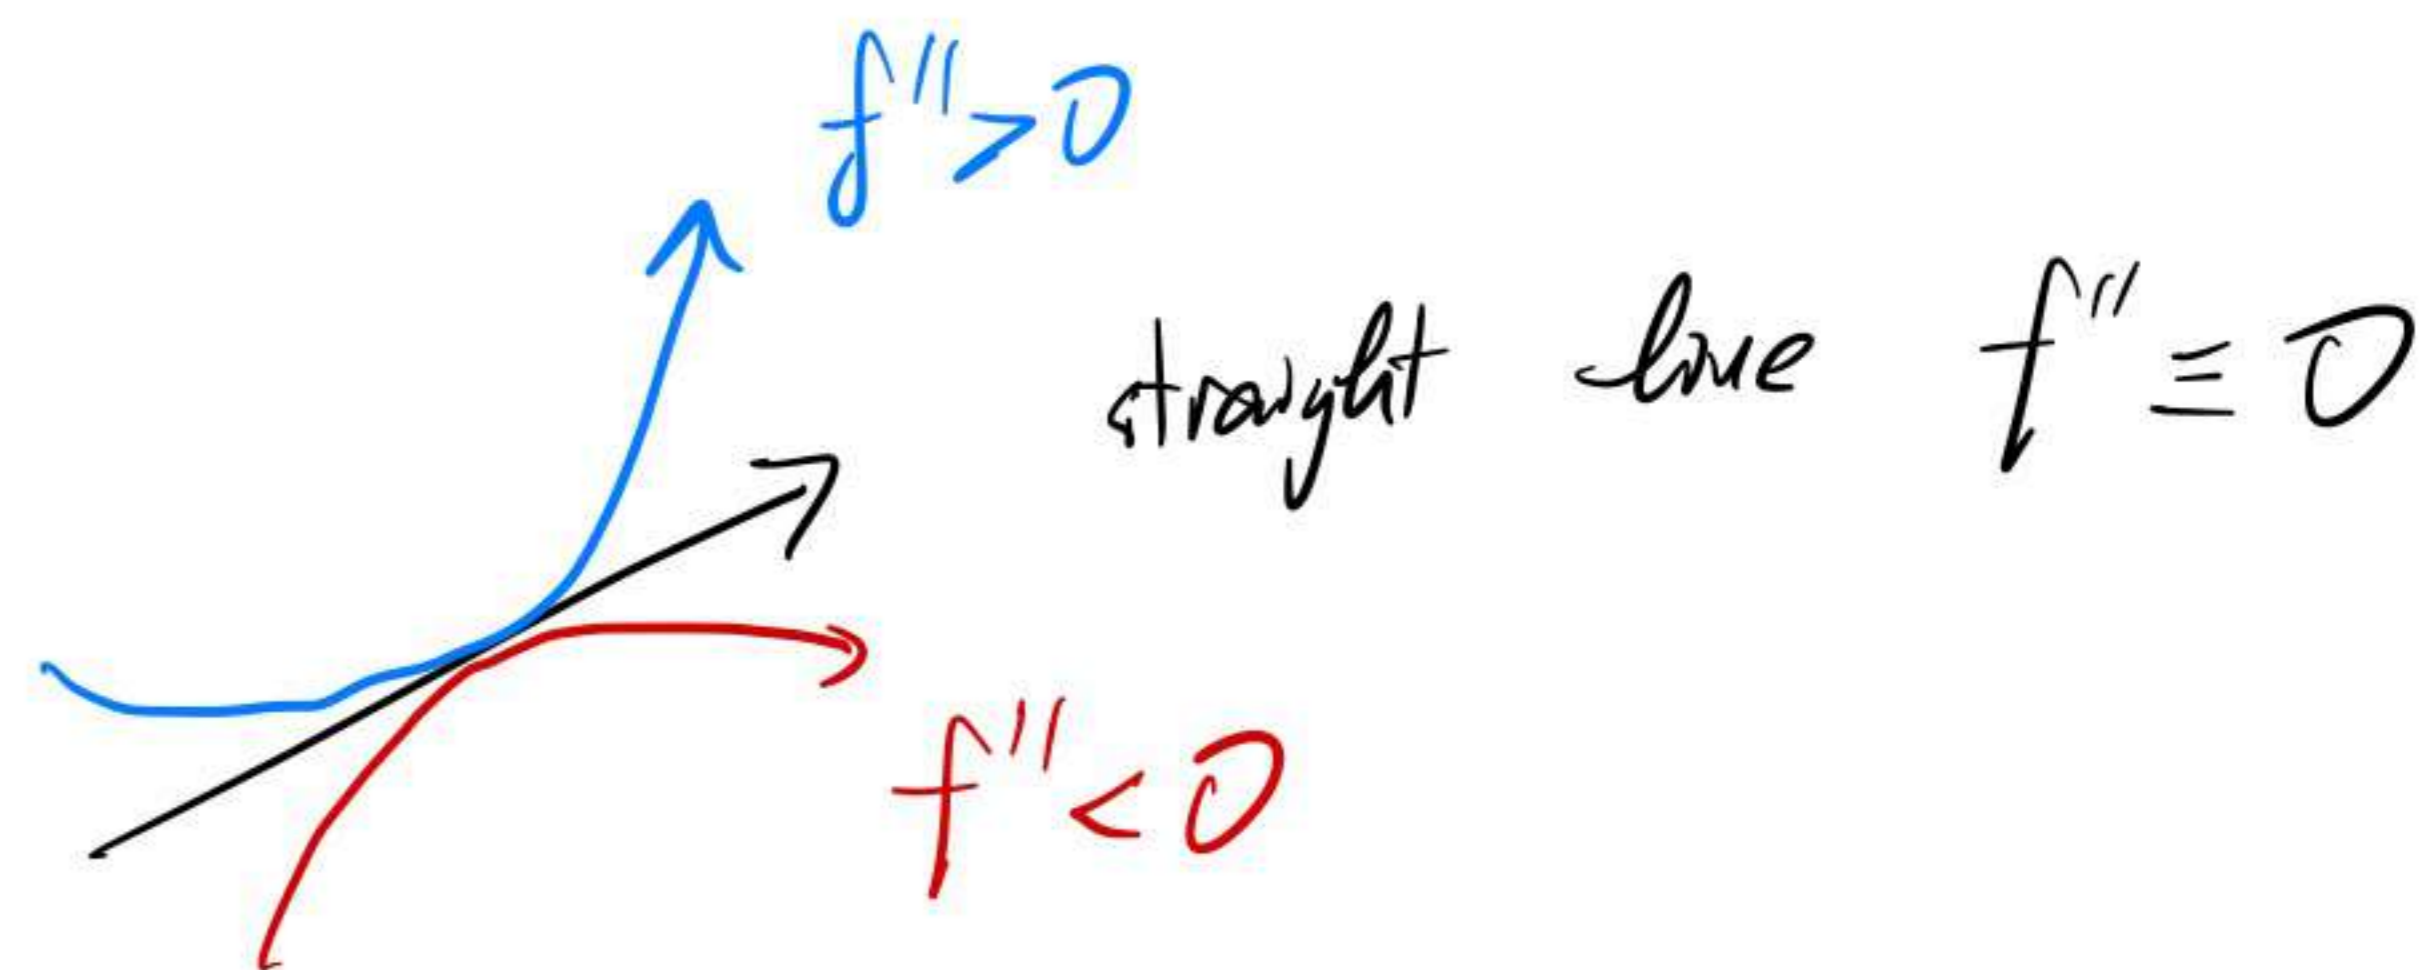 f''>0
straight line f'' ≡ 0
f''<0